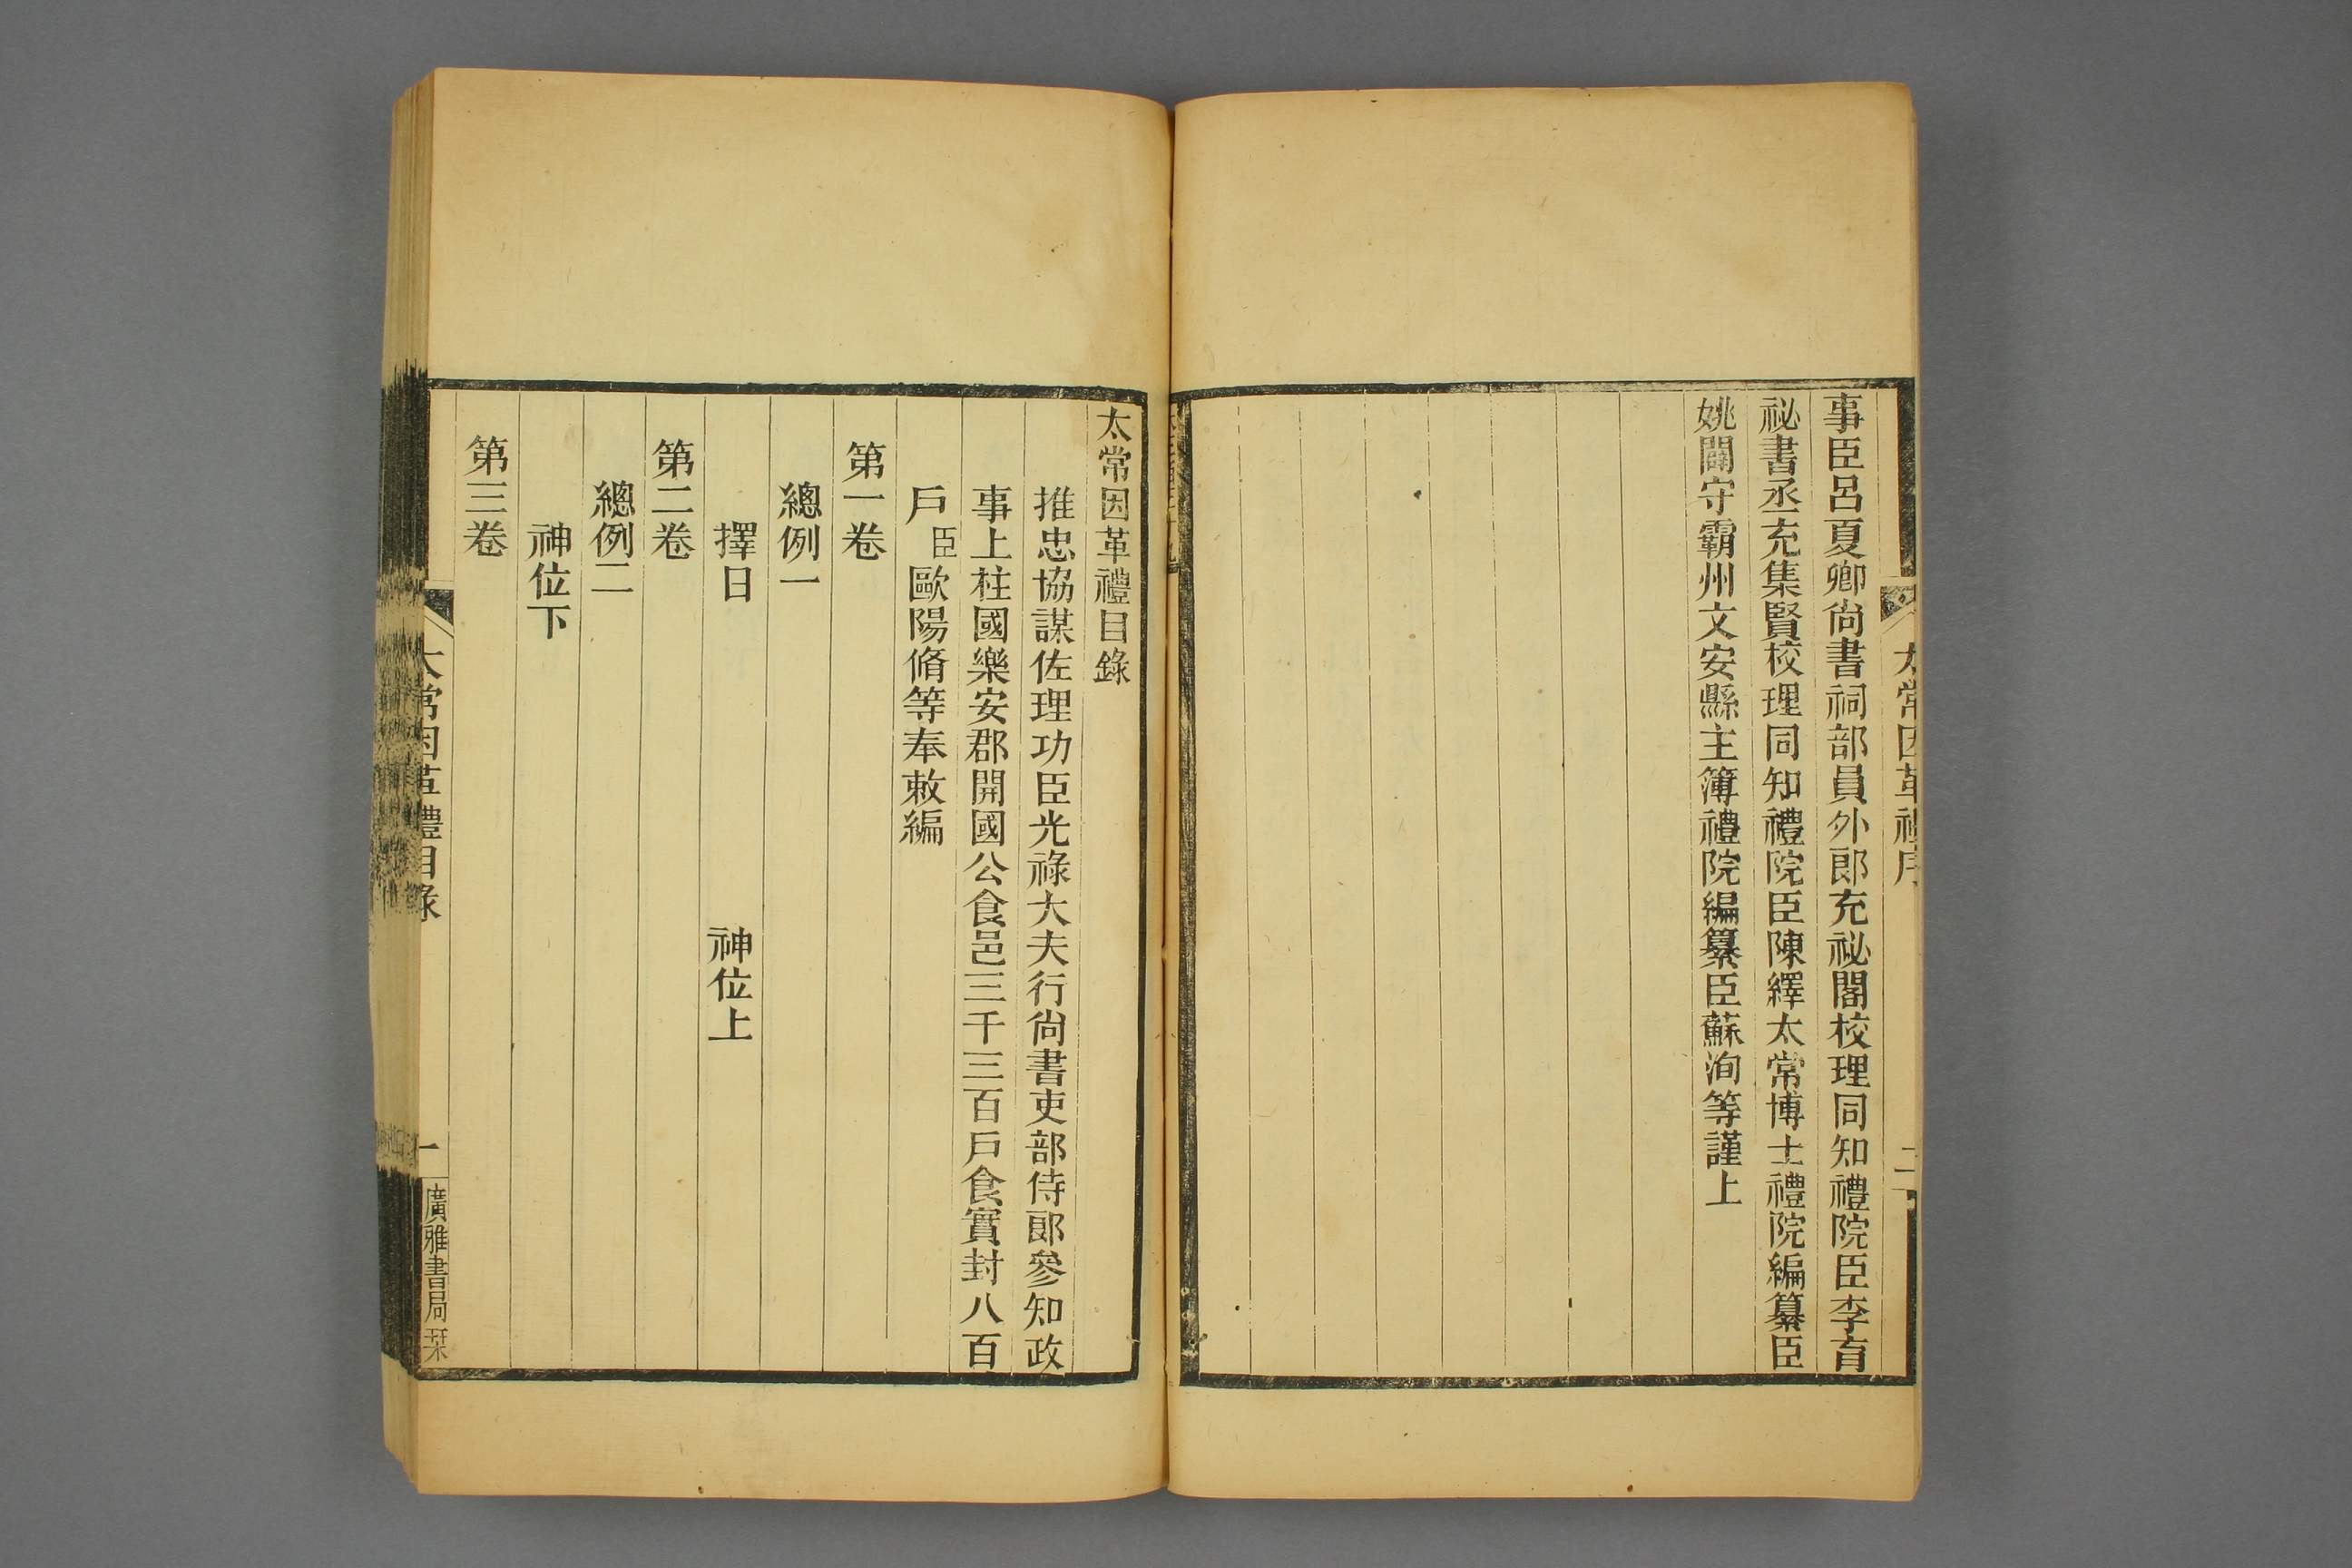 太常因革禮序
二
事臣呂夏卿尙書祠部員外郞充祕閣校理同知禮院臣李育
祕書丞充集賢校理同知禮院臣陳繹太常博士禮院編纂臣
姚闢守霸州文安縣主簿禮院編纂臣蘇洵等謹上
太常因革禮目錄
推忠協謀佐理功臣光祿大夫行尙書吏部侍郞參知政
事上柱國樂安郡開國公食邑三千三百戶食實封八百
戶臣歐陽脩等奉敕編
第一卷
總例一
擇日 神位上
第二卷
總例二
神位下
第三卷
太常因革禮目錄
一
廣雅書局栞